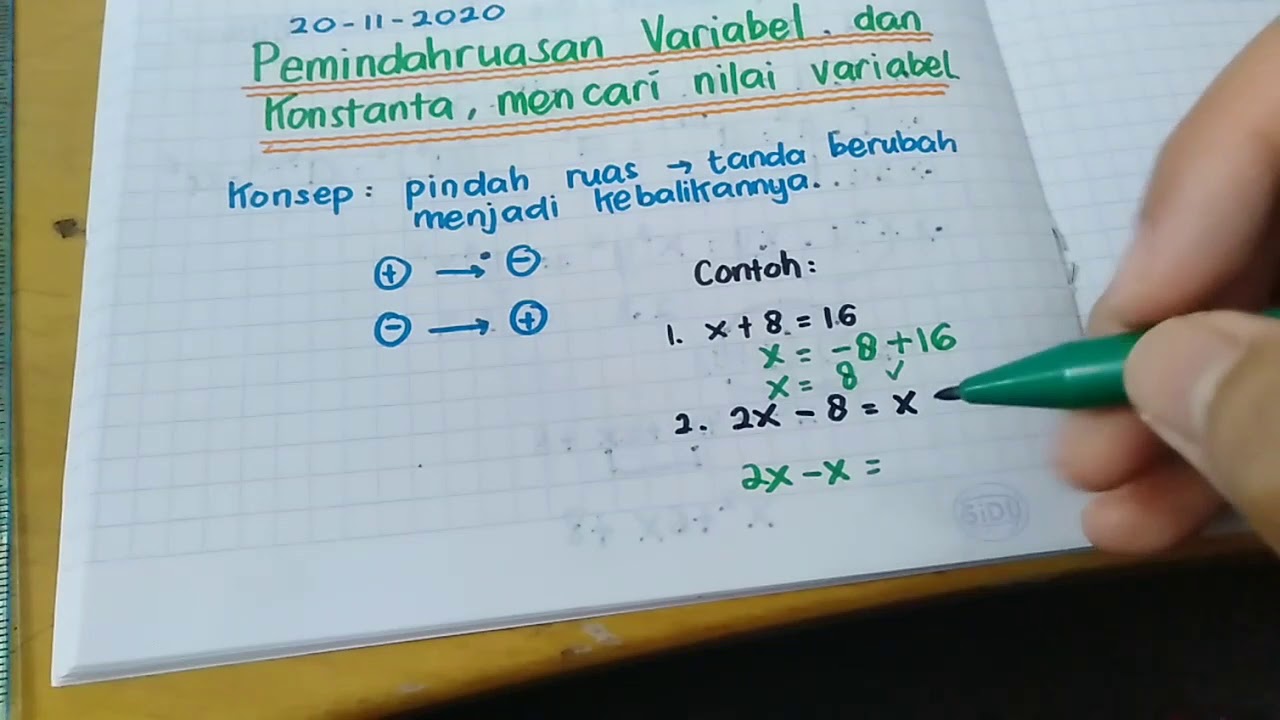 20-11-2020
Pemindahruasan Variabel dan
Konstanta, mencari nilai variabel
Konsep: pindah ruas → tanda berubah
menjadi kebalikannya.
+ → -
- → +
Contoh:
1. x + 8 = 16
x = -8 + 16
x = 8 ✓
2. 2x - 8 = x
2x - x =
SiDU